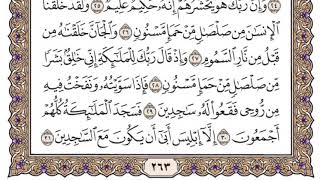 ٢٤ وَإِنَّ رَبَّكَ هُوَ يَحْشُرُهُمْ إِنَّهُ حَكِيمٌ عَلِيمٌ ٢٥ وَلَقَدْ خَلَقْنَا
الْإِنسَانَ مِن صَلْصَالٍ مِّنْ حَمَإٍ مَّسْنُونٍ ٢٦ وَالْجَانَّ خَلَقْنَاهُ
مِن قَبْلُ مِن نَّارِ السَّمُومِ ٢٧ وَإِذْ قَالَ رَبُّكَ لِلْمَلَائِكَةِ إِنِّي خَالِقٌ بَشَرًا
مِّن صَلْصَالٍ مِّنْ حَمَإٍ مَّسْنُونٍ ٢٨ فَإِذَا سَوَّيْتُهُ وَنَفَخْتُ فِيهِ
مِن رُّوحِي فَقَعُوا لَهُ سَاجِدِينَ ٢٩ فَسَجَدَ الْمَلَائِكَةُ كُلُّهُمْ
أَجْمَعُونَ ٣٠ إِلَّا إِبْلِيسَ أَبَىٰ أَن يَكُونَ مَعَ السَّاجِدِينَ ٣١
٢٦٣